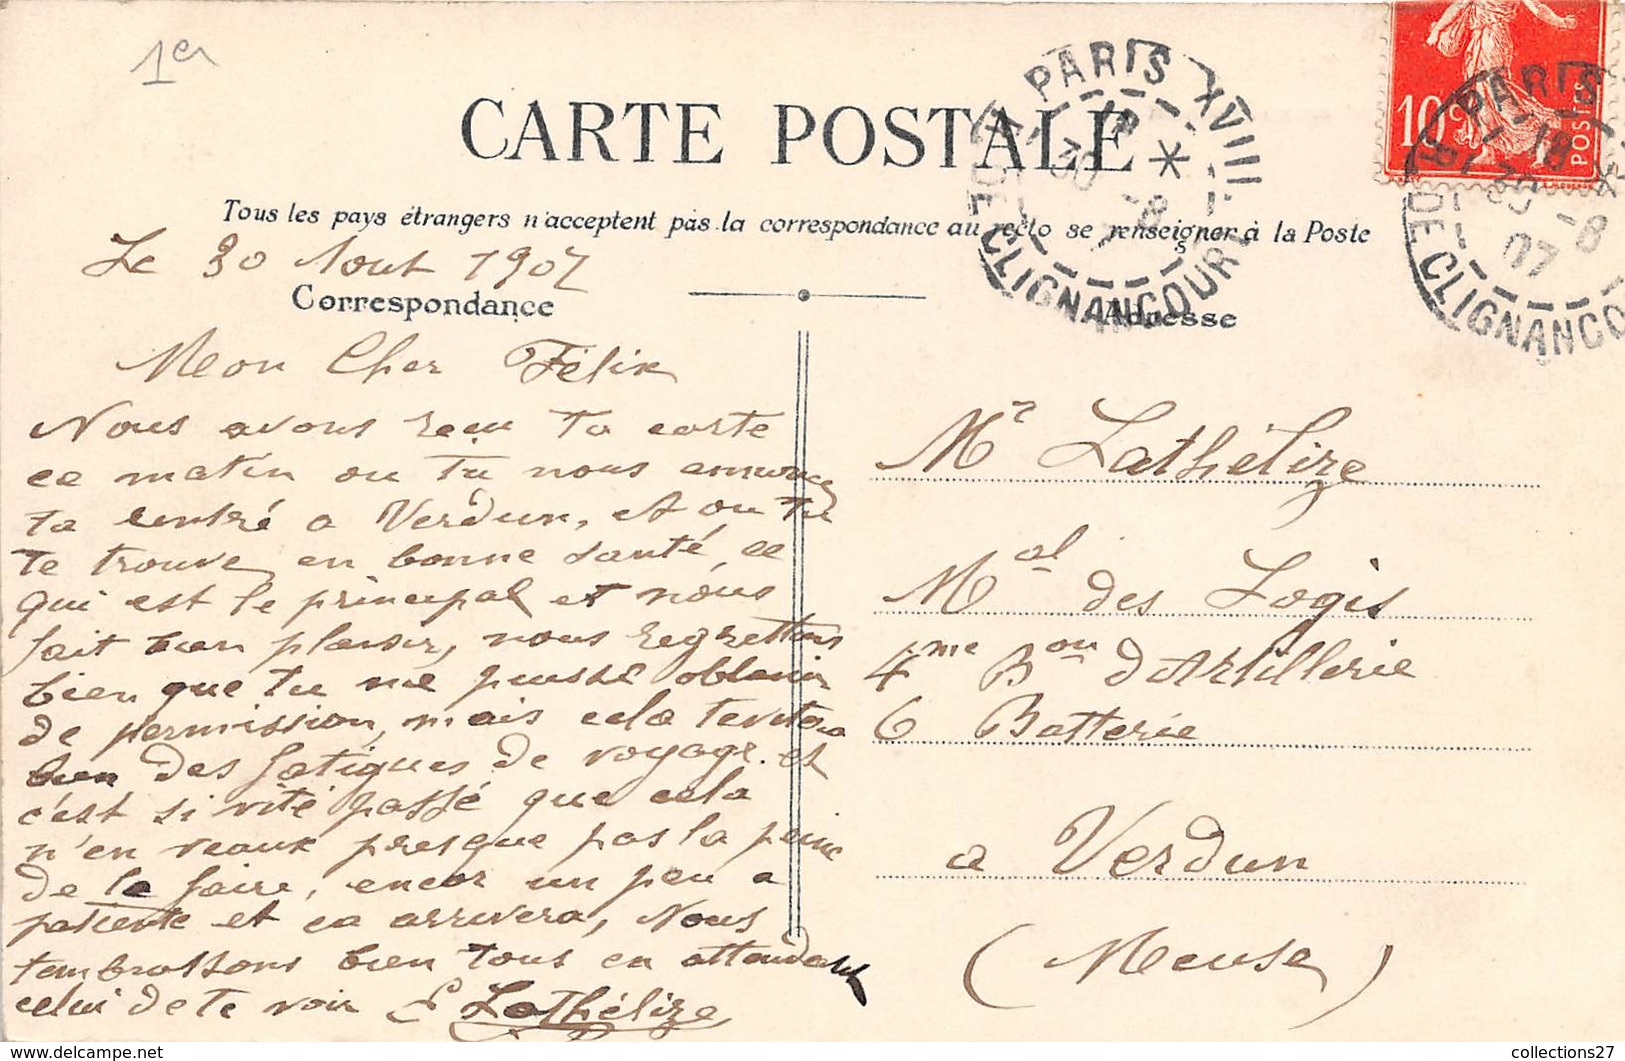 1er
CARTE POSTALE
Tous les pays étrangers n'acceptent pas la correspondance au recto se renseigner à la Poste
Le 30 Aout 1907
Correspondance
Mon Cher Félix
Nous avons reçu ta carte
ce matin ou tu nous annonce
ta rentré a Verdun, et ou tu
te trouve en bonne santé, ce
qui est le principal et nous
fait bien plaisir, nous regrettons
bien que tu ne puisse obtenir
de permission, mais cela tevitera
bien des fatigues de voyage. et
c'est si vite passé que cela
n'en veaux presque pas la peine
de le faire, encor un peu a
patiente et ca arrivera, Nous
tembrassons bien tous en attendant
celui de te voir E Lathélize
Adresse
Mr Lathélize
Mal des Logis
4me Bon d'Artillerie
6 Batterie
a Verdun
(Meuse)
PARIS XVIII
18
30 -8
07
R. DE CLIGNANCOURT
10c
POSTES
PARIS
18
30 -8
07
R. DE CLIGNANCO
collections27